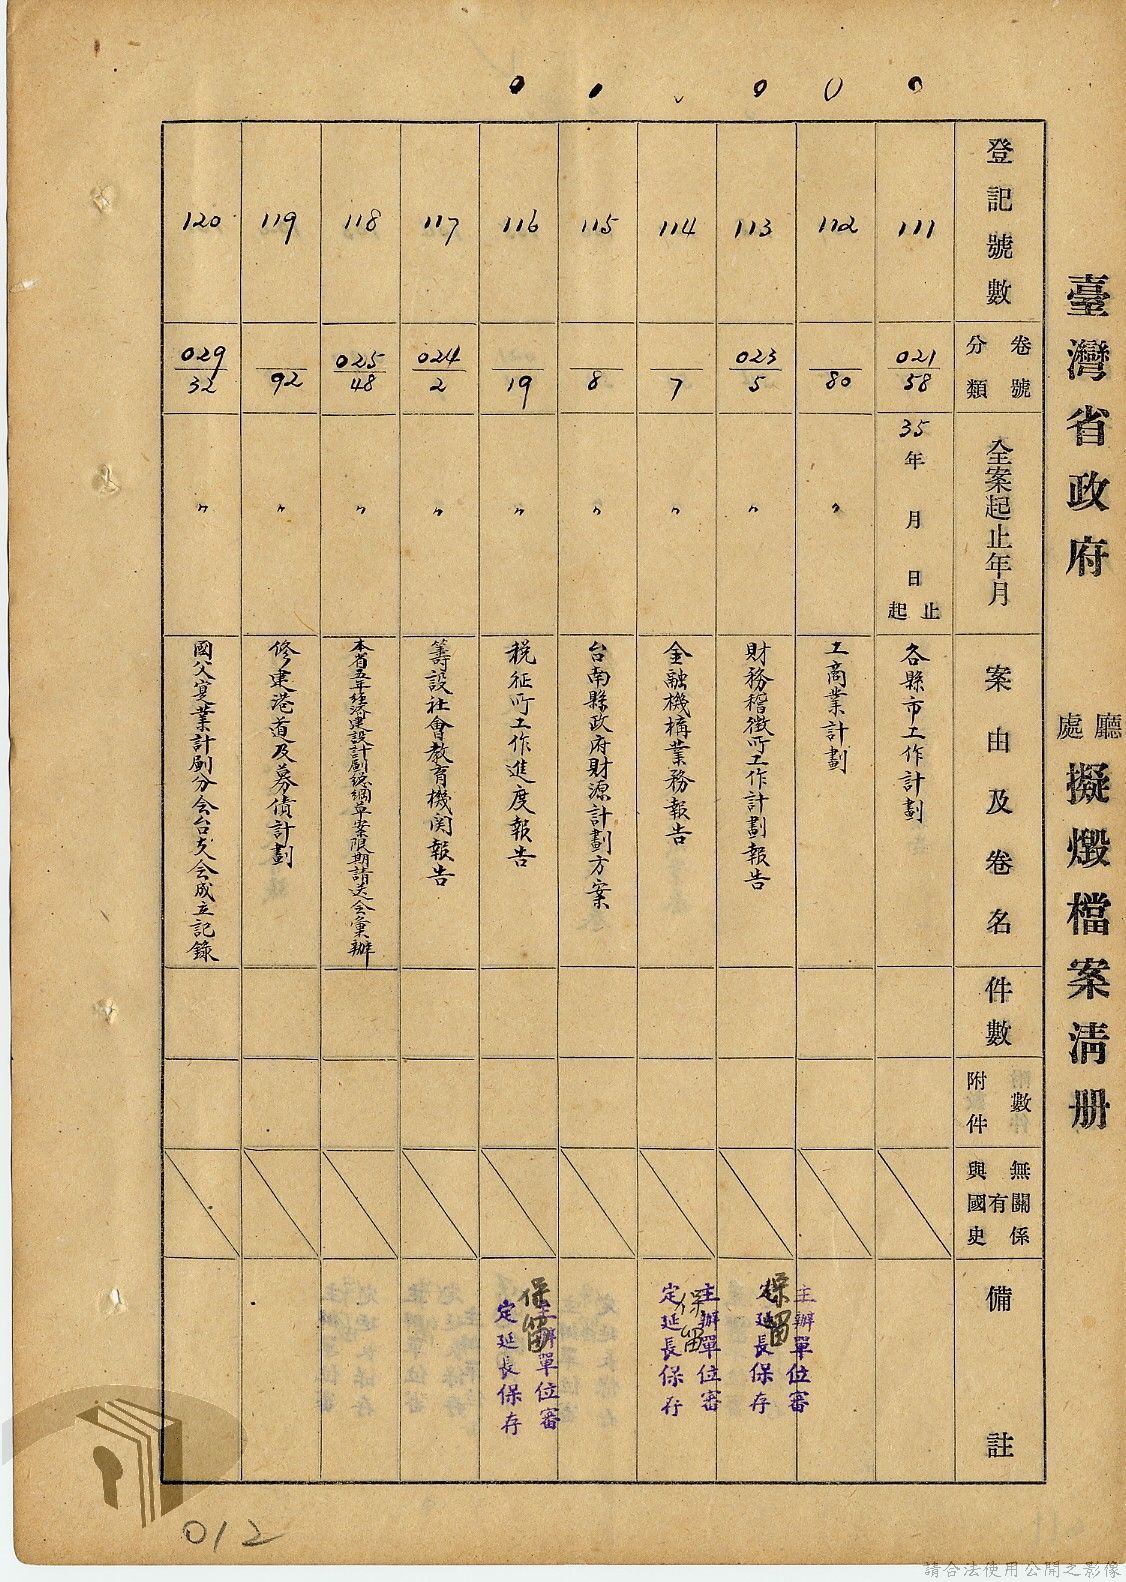 臺灣省政府 廳處 擬燬檔案清册
登記號數
卷號分類
全案起止年月
案由及卷名
件數
附件數
與國史有無關係
備註
111
021/58
35年 月 日起止
各縣市工作計劃
112
80
〃
工商業計劃
113
023/5
〃
財務稽徵所工作計劃報告
主辦單位審定延長保存
保留
114
7
〃
金融機構業務報告
主辦單位審定延長保存
保留
115
8
〃
台南縣政府財源計劃方案
116
19
〃
税征所工作進度報告
主辦單位審定延長保存
保留
117
024/2
〃
籌設社會教育機関報告
118
025/48
〃
本省五年經濟建設計劃總綱草案限期請送会彙辦
119
92
〃
修建港道及募債計劃
120
029/32
〃
國父實業計劃分会台支会成立記錄
012
請合法使用公開之影像